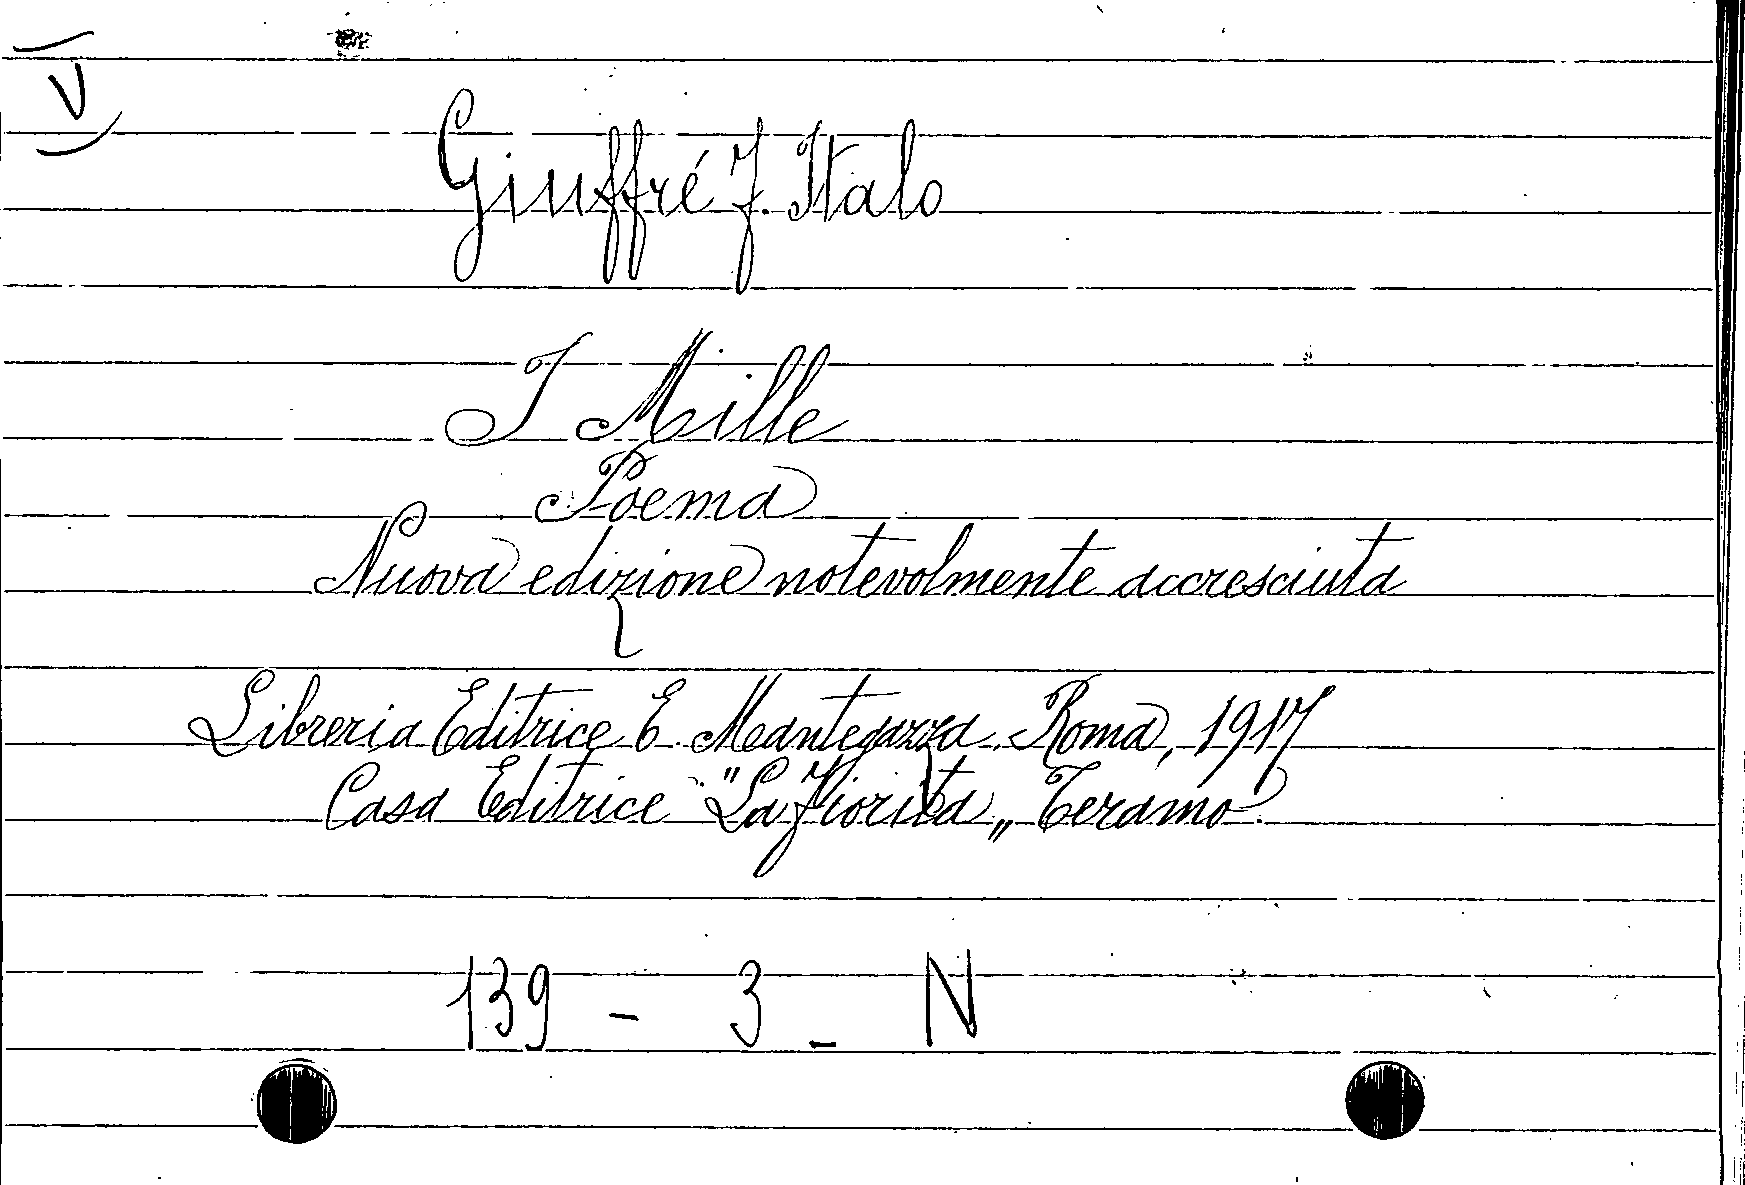 V
Giuffré F. Italo
I Mille
Poema
Nuova edizione notevolmente accresciuta
Libreria Editrice E. Mantegazza. Roma, 1917
Casa Editrice "La Fiorita„ Teramo.
139 - 3 - N